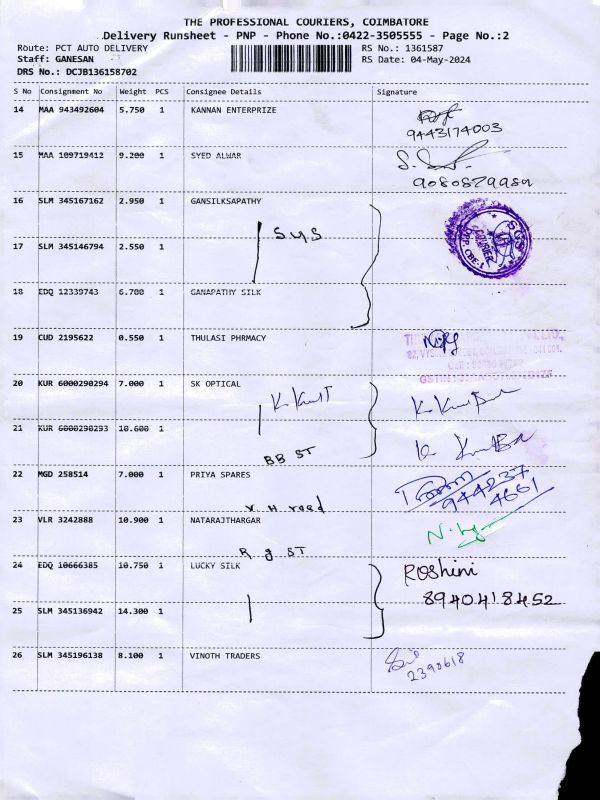 THE PROFESSIONAL COURIERS, COIMBATORE
Delivery Runsheet - PNP - Phone No.:0422-3505555 - Page No.:2
Route: PCT AUTO DELIVERY
RS No.: 1361587
Staff: GANESAN
RS Date: 04-May-2024
DRS No.: DCJB136158702
S No Consignment No Weight PCS Consignee Details Signature
14 MAA 943492604 5.750 1 KANNAN ENTERPRIZE
9443174003
15 MAA 109719412 9.200 1 SYED ALWAR
9080829989
16 SLM 345167162 2.950 1 GANSILKSAPATHY
SGS
17 SLM 345146794 2.550 1
18 EDQ 12339743 6.700 1 GANAPATHY SILK
19 CUD 2195622 0.550 1 THULASI PHRMACY
20 KUR 6000290294 7.000 1 SK OPTICAL
21 KUR 6000290293 10.600 1
BB ST
22 MGD 258514 7.000 1 PRIYA SPARES
944237
4661
V. H road
23 VLR 3242888 10.900 1 NATARAJTHARGAR
R g ST
24 EDQ 10666385 10.750 1 LUCKY SILK
Roshini
8940418452
25 SLM 345136942 14.300 1
26 SLM 345196138 8.100 1 VINOTH TRADERS
2390618